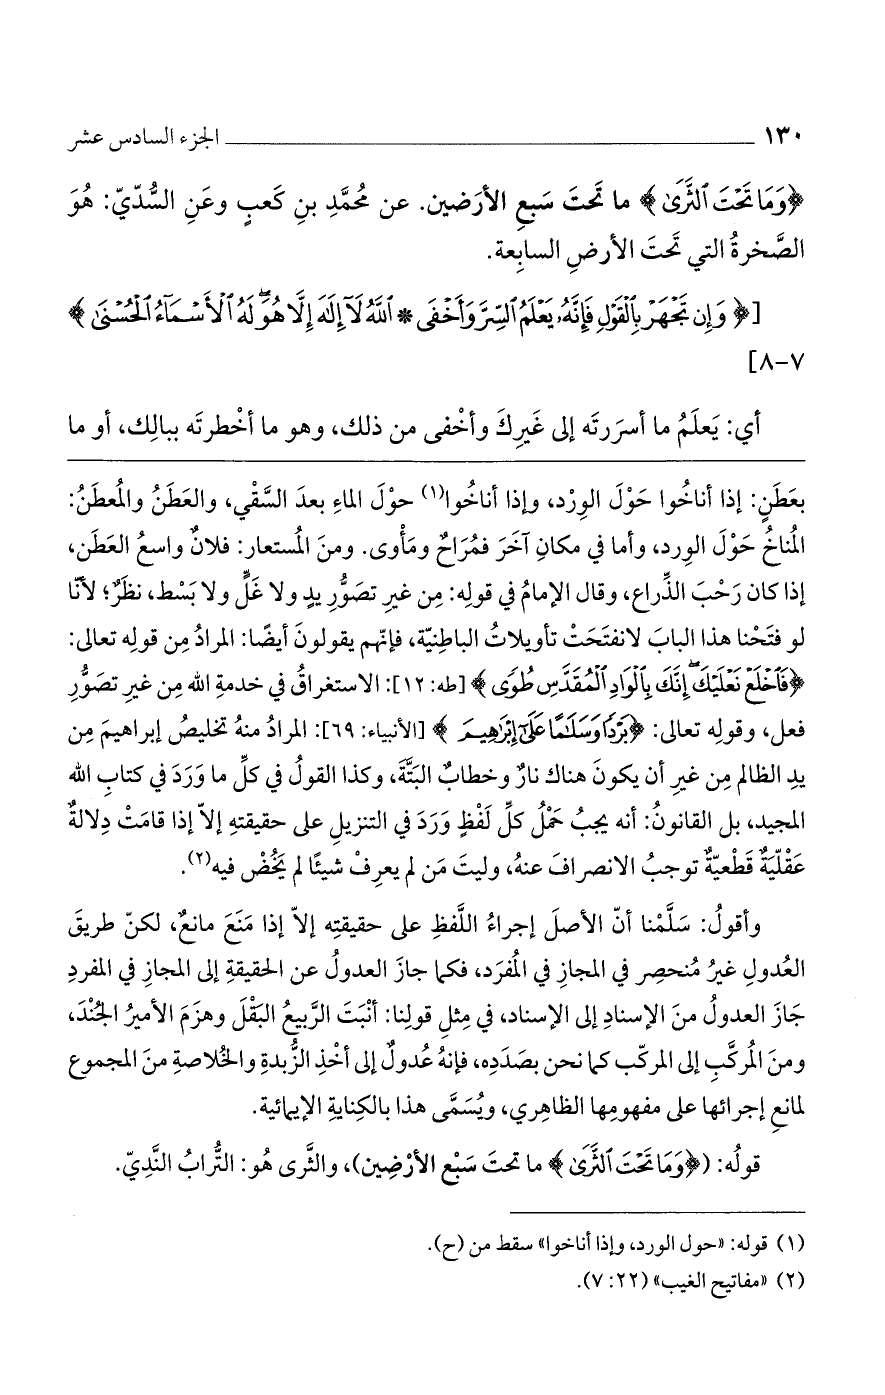 ١٣٠ ــــــــــــــــــــ الجزء السادس عشر
﴿وَمَا تَحْتَ ٱلثَّرَىٰ﴾ ما تَحتَ سَبعِ الأرَضين. عن مُحمَّدِ بنِ كَعبٍ وعَنِ السُّدّيّ: هُوَ
الصَّخرةُ التي تَحتَ الأرضِ السابِعة.
[﴿وَإِن تَجْهَرْ بِٱلْقَوْلِ فَإِنَّهُۥ يَعْلَمُ ٱلسِّرَّ وَأَخْفَى * ٱللَّهُ لَآ إِلَٰهَ إِلَّا هُوَ ۖ لَهُ ٱلْأَسْمَآءُ ٱلْحُسْنَىٰ﴾
٧-٨]
أي: يَعلَمُ ما أسرَرتَه إلى غَيرِكَ وأخْفى من ذلك، وهو ما أخْطرتَه ببالِك، أو ما
بعَطَنٍ: إذا أناخُوا حَوْلَ الوِرْد، وإذا أناخُوا(١) حوْلَ الماءِ بعدَ السَّقْي، والعَطَنُ والمُعطَنُ:
المُناخُ حَوْلَ الوِرد، وأما في مكانِ آخَرَ فمُرَاحٌ ومَأْوى. ومنَ المُستعار: فلانٌ واسعُ العَطَن،
إذا كان رَحْبَ الذِّراع، وقال الإمامُ في قولِه: مِن غيرِ تصَوُّرِ يدٍ ولا غَلٍّ ولا بَسْط، نظَرٌ؛ لأنّا
لو فتَحْنا هذا البابَ لانفتَحَتْ تأويلاتُ الباطِنيّة، فإنّهم يقولونَ أيضًا: المرادُ مِن قولِه تعالى:
﴿فَٱخْلَعْ نَعْلَيْكَ ۖ إِنَّكَ بِٱلْوَادِ ٱلْمُقَدَّسِ طُوًى﴾ [طه: ١٢]: الاستغراقُ في خدمةِ الله مِن غيرِ تصَوُّرِ
فعل، وقولِه تعالى: ﴿بَرْدًا وَسَلَٰمًا عَلَىٰٓ إِبْرَٰهِيمَ﴾ [الأنبياء: ٦٩]: المرادُ منهُ تخليصُ إبراهيمَ مِن
يدِ الظالم مِن غيرِ أن يكونَ هناك نارٌ وخطابٌ البتَّةَ، وكذا القولُ في كلِّ ما وَرَدَ في كتابِ الله
المجيد، بل القانونُ: أنه يجبُ حَمْلُ كلِّ لَفْظٍ وَرَدَ في التنزيلِ على حقيقتهِ إلاّ إذا قامَتْ دِلالةٌ
عَقْلِيّةٌ قَطْعيّةٌ توجبُ الانصرافَ عنهُ، وليتَ مَن لم يعرِفْ شيئًا لم يَخُضْ فيه(٢).
وأقولُ: سَلَّمْنا أنّ الأصلَ إجراءُ اللَّفظِ على حقيقتِه إلاّ إذا مَنَعَ مانعٌ، لكنّ طريقَ
العُدولِ غيرُ مُنحصِر في المجازِ في المُفرَد، فكما جازَ العدولُ عن الحقيقةِ إلى المجازِ في المفردِ
جَازَ العدولُ منَ الإسنادِ إلى الإسناد، في مِثلِ قولِنا: أنْبَتَ الرَّبيعُ البَقْلَ وهزَمَ الأميرُ الجُنْدَ،
ومنَ المُركَّبِ إلى المركّب كما نحن بصَدَدِه، فإنهُ عُدولٌ إلى أخْذِ الزُّبدةِ والخُلاصةِ منَ المجموع
لمانعِ إجرائها على مفهومِها الظاهِري، ويُسَمَّى هذا بالكِنايةِ الإيمائية.
قولُه: (﴿وَمَا تَحْتَ ٱلثَّرَىٰ﴾ ما تحتَ سَبْعِ الأرْضِين)، والثَّرى هُو: التُّرابُ النَّدِيّ.
(١) قوله: «حول الورد، وإذا أناخوا» سقط من (ح).
(٢) «مفاتيح الغيب» (٢٢: ٧).